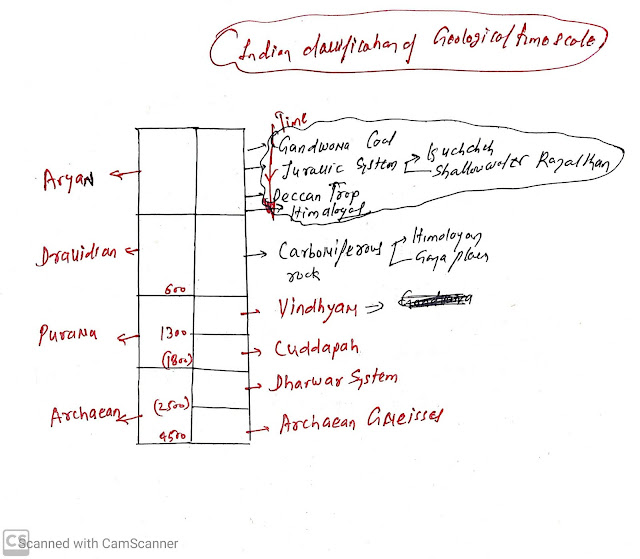 Indian classification of Geological time scale
Time
Gandwona Coal
Jurassic System → Kuchchch
Shallow water Rajasthan
Aryan
Deccan Trap
Himalayas
Dravidian
Carboniferous rock
Himalayan
Gaya plains
600
Vindhyan ⇒
Purana
1300
(1800)
Cuddapah
Dharwar System
Archaean
(2500)
4500
Archaean Gneisses
CS Scanned with CamScanner